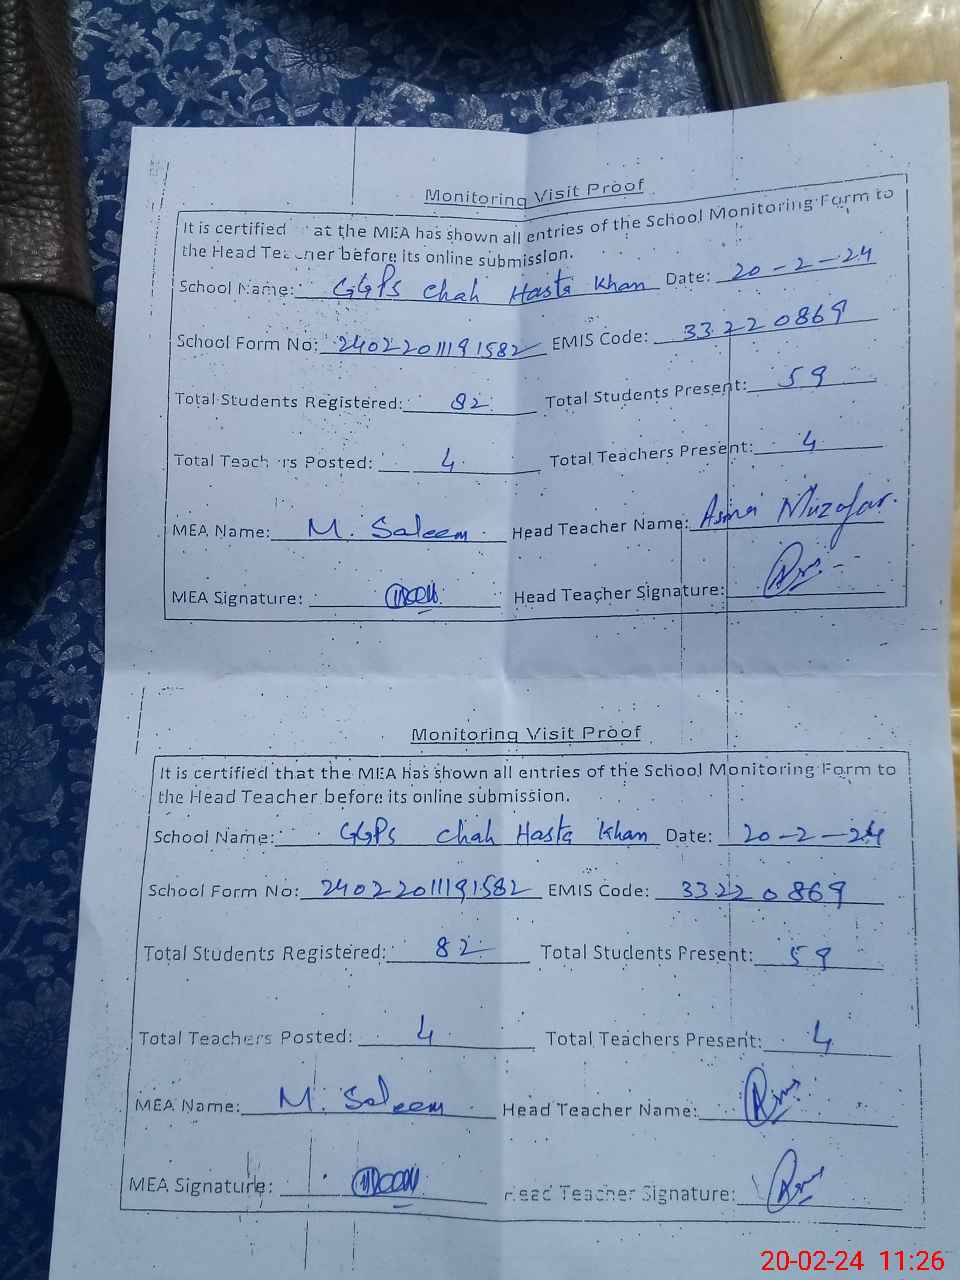 Monitoring Visit Proof
It is certified at the MEA has shown all entries of the School Monitoring Form to
the Head Teacher before its online submission.
School Name: GGPS Chah Hasta Khan Date: 20-2-24
School Form No: 24022011191582 EMIS Code: 33220869
Total Students Registered: 82 Total Students Present: 59
Total Teachers Posted: 4 Total Teachers Present: 4
MEA Name: M. Saleem Head Teacher Name: Asma Muzafar
MEA Signature: Head Teacher Signature:
Monitoring Visit Proof
It is certified that the MEA has shown all entries of the School Monitoring Form to
the Head Teacher before its online submission.
School Name: GGPS Chah Hasta Khan Date: 20-2-24
School Form No: 24022011191582 EMIS Code: 33220869
Total Students Registered: 82 Total Students Present: 59
Total Teachers Posted: 4 Total Teachers Present: 4
MEA Name: M. Saleem Head Teacher Name:
MEA Signature: Head Teacher Signature:
20-02-24 11:26